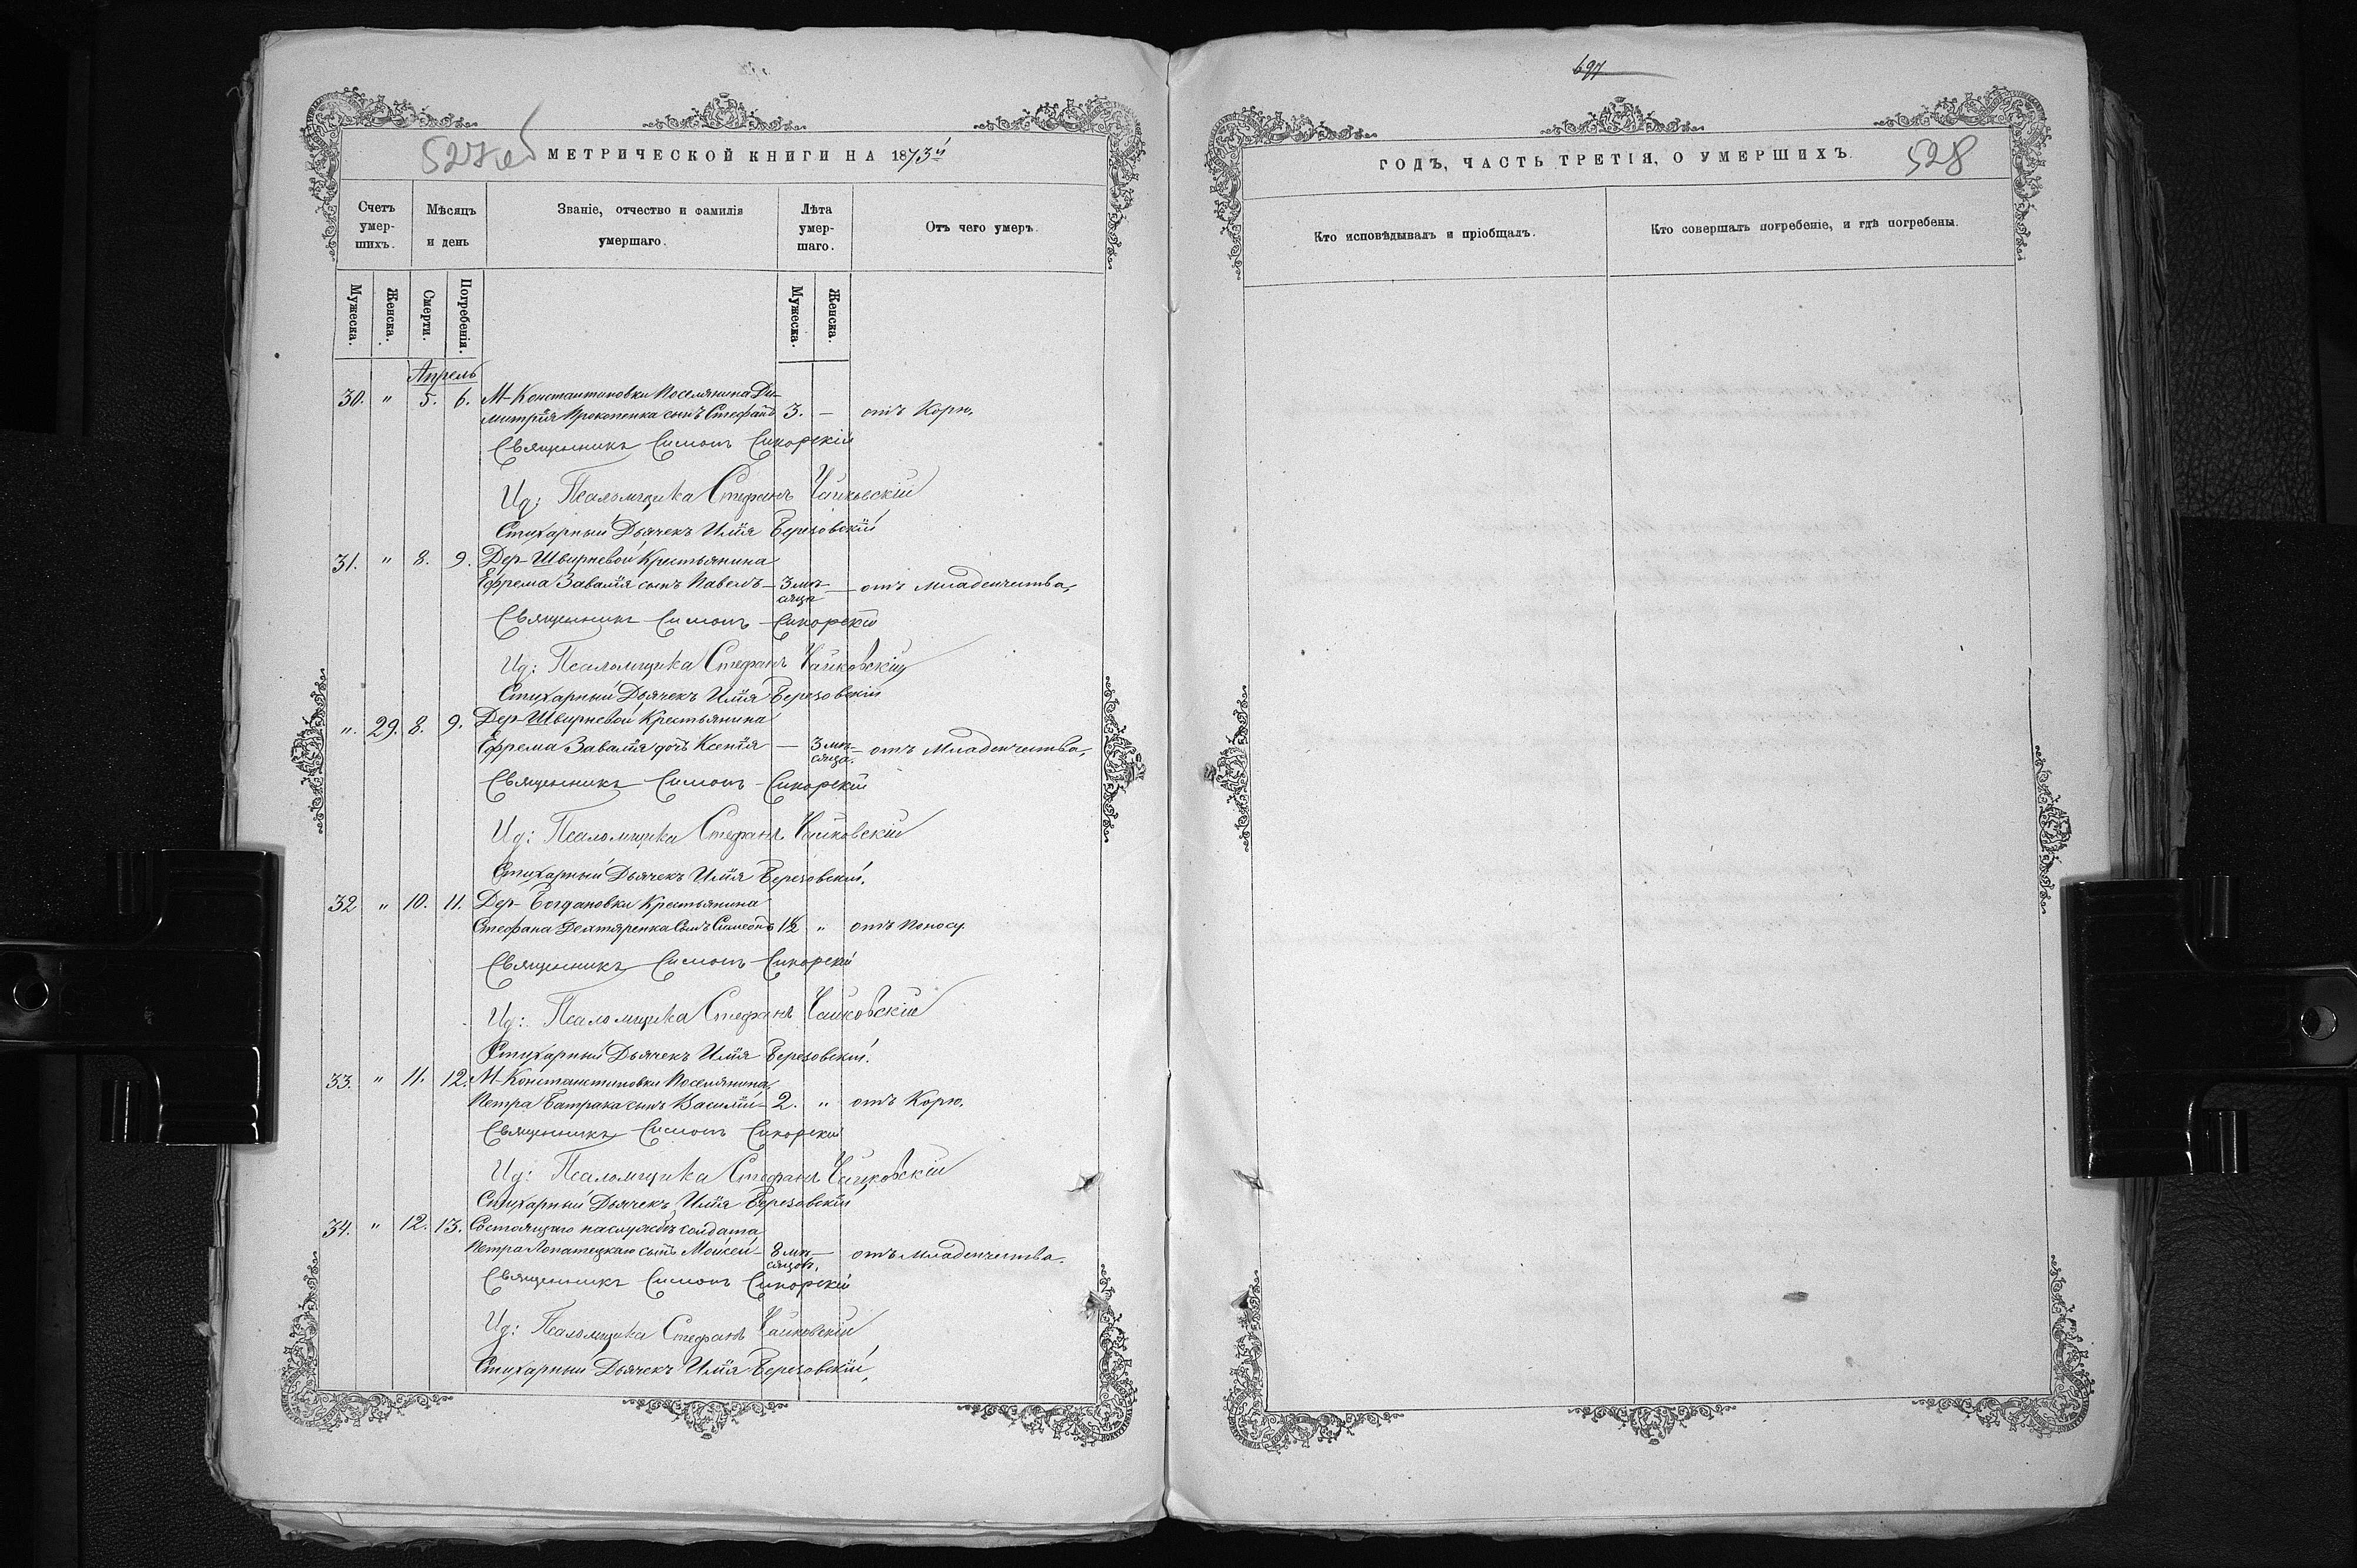 697
527 об
МЕТРИЧЕСКОЙ КНИГИ НА 1873й
Счетъ умер-шихъ.
Мѣсяцъ и день
Званіе, отчество и фамилія умершаго.
Лѣта умер-шаго.
Отъ чего умеръ.
Мужеска.
Женска.
Смерти.
Погребенія.
Мужеска.
Женска.
Апрель
30. " 5. 6. М-Константиновки Поселянина Ди-
митрія Прокопенка сынъ Стефанъ 3. — отъ Корю.
Священникъ Симонъ Сикорскій
Ид: Псаломщика Стефанъ Чайковскій
Стихарный Дьячекъ Илія Березовскій
31. " 8. 9. Дер-Швырневой Крестьянина
Ефрема Завалія сынъ Павелъ — 3 мѣ- — отъ младенчества,
сяца
Священникъ Симонъ Сикорскій
Ид: Псаломщика Стефанъ Чайковскій
Стихарный Дьячекъ Илія Березовскій
". 29. 8. 9. Дер-Швырневой Крестьянина
Ефрема Завалія дочь Ксенія — 3 мѣ- — отъ Младенчества,
сяца.
Священникъ Симонъ Сикорскій
Ид: Псаломщика Стефанъ Чайковскій
Стихарный Дьячекъ Илія Березовскій.
32 " 10. 11. Дер- Богдановки Крестьянина
Стефана Дехтяренка Сынъ Симеонъ 1½ " отъ Поносу.
Священникъ Симонъ Сикорскій
Ид: Псаломщика Стефанъ Чайковскій
Стихарный Дьячекъ Илія Березовскій.
33. " 11. 12. М-Константиновки Поселянина
Петра Батрака сынъ Василій — 2. " отъ Корю.
Священникъ Симонъ Сикорскій
Ид: Псаломщика Стефанъ Чайковскій
Стихарный Дьячекъ Илія Березовскій
34. " 12. 13. Состоящаго на службѣ солдата
Петра Лопатецкаго сынъ Моисей — 8 мѣ- — отъ младенчества.
сяцовъ.
Священникъ Симонъ Сикорскій
Ид: Псаломщика Стефанъ Чайковскій
Стихарный Дьячекъ Илія Березовскій,
ГОДЪ, ЧАСТЬ ТРЕТІЯ, О УМЕРШИХЪ.
528
Кто исповѣдывалъ и пріобщалъ.
Кто совершалъ погребеніе, и гдѣ погребены.